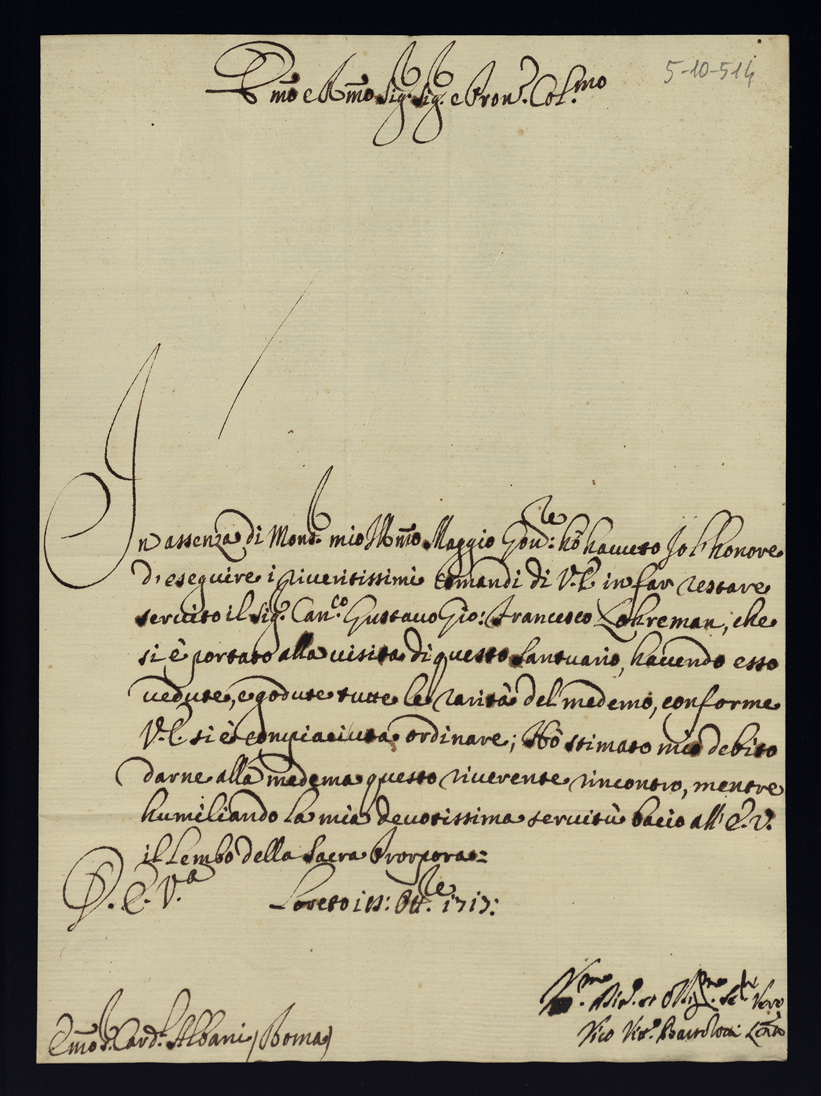 Emo e Rmo Sig: Sig: e Pron: Col:mo
5-10-514
In assenza di Mons: mio Illmo Maggio Gov:re hò havuto Io l'honore
d'eseguire i riveritissimi comandi di V.E. in far restare
servito il Sig: Can:co Gustavo Gio: Francesco Lokreman, che
si è portato alla visita di questo santuario, havendo esso
vedute, e godute tutte le rarità del medemo, conforme
V.E. si è compiaciuta ordinare; Hò stimato mio debito
darne alla medema questo riverente rincontro, mentre
humiliando la mia devotissima servitù bacio all' E.V.
il Lembo della Sacra Porpora=
D. E. V.a Loreto 8: Ott:re 1717:
V:mo Dev:
Emo S. Card: Albani (Roma) Bartolocci